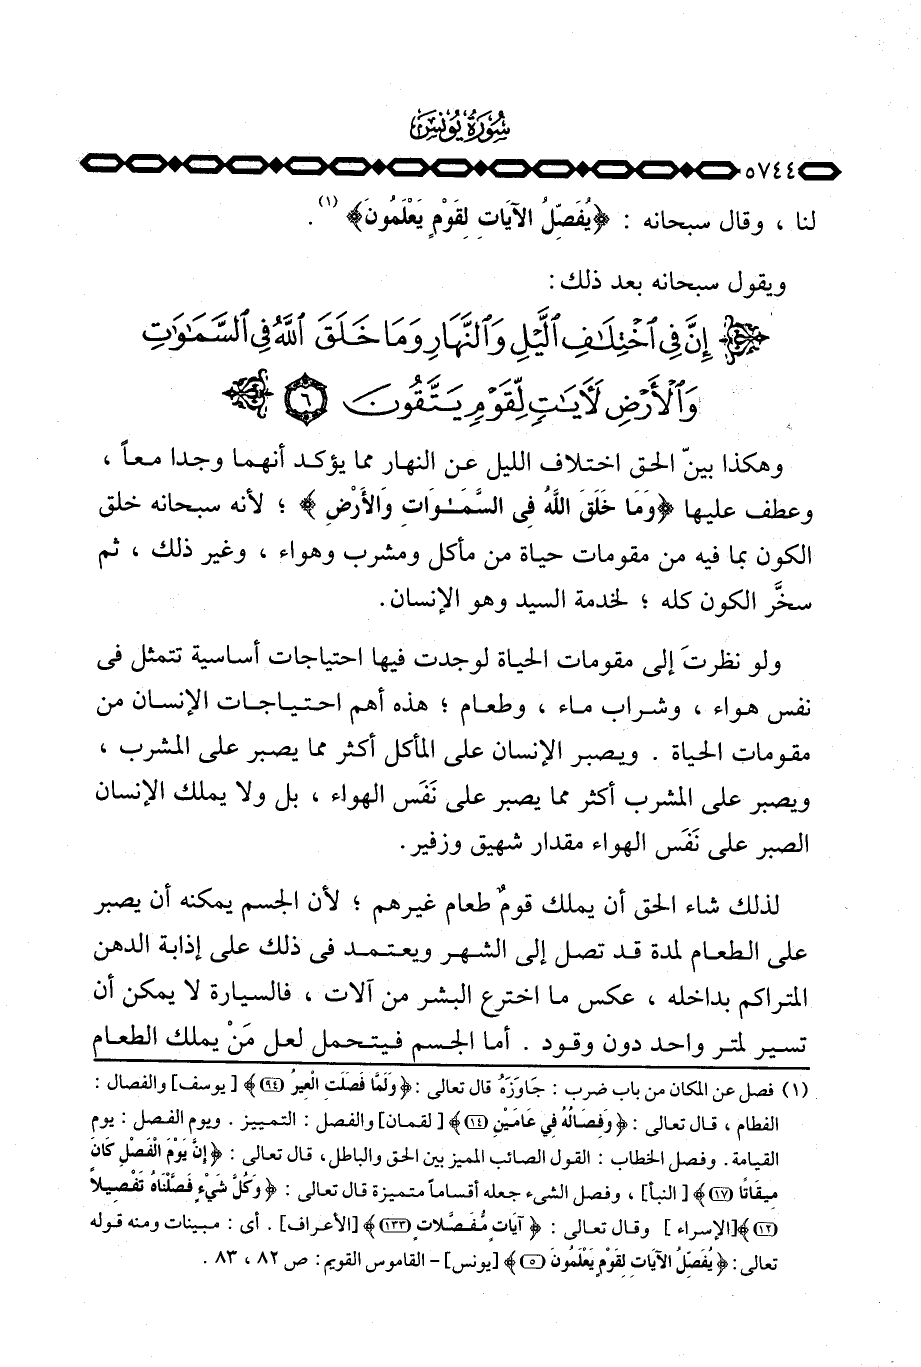 سُورَةُ يُونُسَ
٥٧٤٤
لنا ، وقال سبحانه : ﴿يُفَصِّلُ الآيَاتِ لِقَوْمٍ يَعْلَمُونَ﴾ (١).
ويقول سبحانه بعد ذلك:
﴿إِنَّ فِي ٱخْتِلَٰفِ ٱلَّيْلِ وَٱلنَّهَارِ وَمَا خَلَقَ ٱللَّهُ فِي ٱلسَّمَٰوَٰتِ
وَٱلْأَرْضِ لَأٓيَٰتٍ لِّقَوْمٍ يَتَّقُونَ ٦﴾
وهكذا بينّ الحق اختلاف الليل عن النهار مما يؤكد أنهما وجدا معاً ،
وعطف عليها ﴿وَمَا خَلَقَ اللَّهُ فِى السَّمَـٰوَاتِ وَالأَرْضِ﴾ ؛ لأنه سبحانه خلق
الكون بما فيه من مقومات حياة من مأكل ومشرب وهواء ، وغير ذلك ، ثم
سخَّر الكون كله ؛ لخدمة السيد وهو الإنسان.
ولو نظرتَ إلى مقومات الحياة لوجدت فيها احتياجات أساسية تتمثل فى
نفس هواء ، وشراب ماء ، وطعام ؛ هذه أهم احتياجات الإنسان من
مقومات الحياة . ويصبر الإنسان على المأكل أكثر مما يصبر على المشرب ،
ويصبر على المشرب أكثر مما يصبر على نَفَس الهواء ، بل ولا يملك الإنسان
الصبر على نَفَس الهواء مقدار شهيق وزفير.
لذلك شاء الحق أن يملك قومٌ طعام غيرهم ؛ لأن الجسم يمكنه أن يصبر
على الطعام لمدة قد تصل إلى الشهر ويعتمد فى ذلك على إذابة الدهن
المتراكم بداخله ، عكس ما اخترع البشر من آلات ، فالسيارة لا يمكن أن
تسير لمتر واحد دون وقود . أما الجسم فيتحمل لعل مَنْ يملك الطعام
(١) فصل عن المكان من باب ضرب : جَاوَزَهُ قال تعالى :﴿وَلَمَّا فَصَلَتِ الْعِيرُ (٩٤)﴾ [يوسف] والفصال :
الفطام ، قال تعالى :﴿وَفِصَالُهُ فِي عَامَيْنِ (١٤)﴾ [لقمان] والفصل : التمييز . ويوم الفصل : يوم
القيامة . وفصل الخطاب : القول الصائب المميز بين الحق والباطل، قال تعالى : ﴿إِنَّ يَوْمَ الْفَصْلِ كَانَ
مِيقَاتًا (١٧)﴾ [النبأ] ، وفصل الشىء جعله أقساماً متميزة قال تعالى : ﴿وَكُلَّ شَيْءٍ فَصَّلْنَاهُ تَفْصِيلاً
(١٢)﴾[الإسراء ] وقال تعالى : ﴿آيَاتٍ مُّفَصَّلاتٍ (١٣٣)﴾ [الأعراف] . أى : مبينات ومنه قوله
تعالى: ﴿يُفَصِّلُ الآيَاتِ لِقَوْمٍ يَعْلَمُونَ (٥)﴾ [يونس] – القاموس القويم: ص ٨٢ ، ٨٣ .